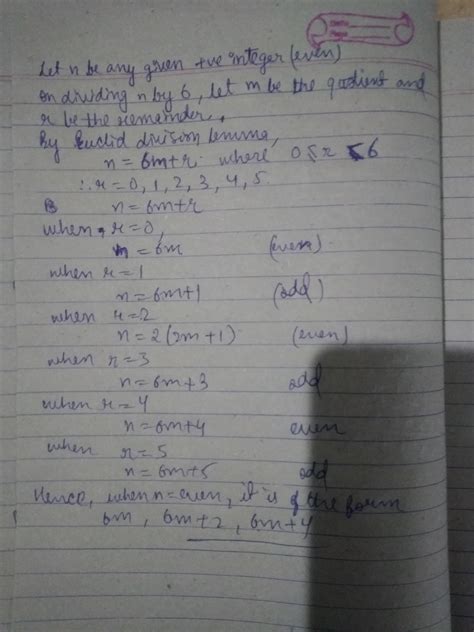 Let n be any given +ve integer (even)
on dividing n by 6, let m be the quotient and
r be the remainder,
By Euclid division lemma,
n = 6m+r where 0 ≤ r < 6
∴ r = 0, 1, 2, 3, 4, 5.
n = 6m+r
when, r = 0,
n = 6m (even)
when r = 1
n = 6m+1 (odd)
when r = 2
n = 2(3m+1) (even)
when r = 3
n = 6m+3 odd
when r = 4
n = 6m+4 even
when r = 5
n = 6m+5 odd
Hence, when n = even, it is of the form
6m, 6m+2, 6m+4